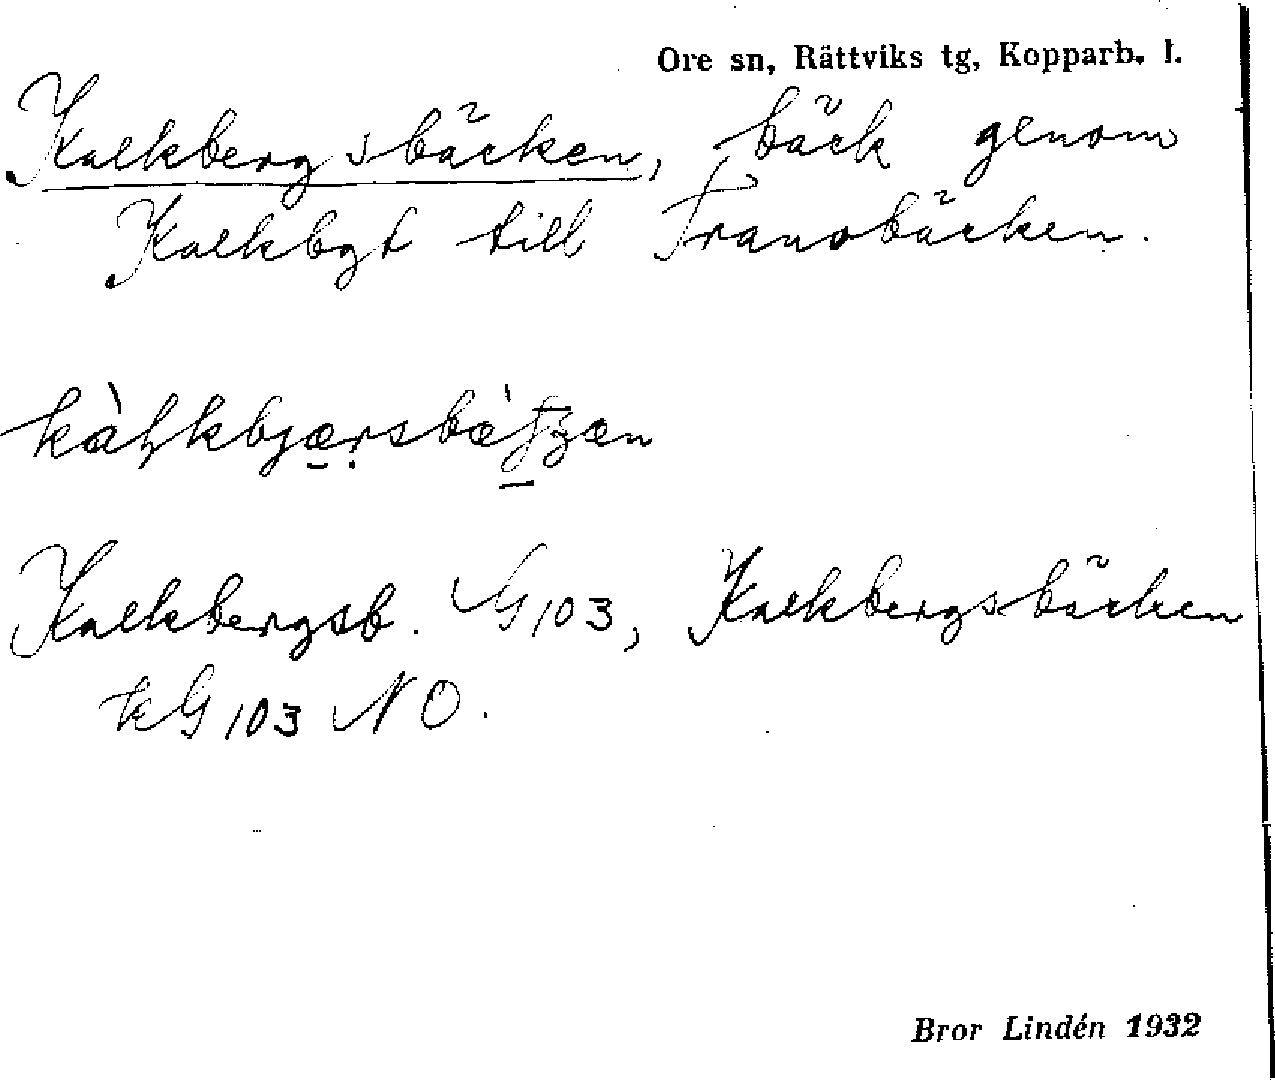 Ore sn, Rättviks tg, Kopparb. l.
Kalkbergsbäcken, bäck genom
Kalkbgt till Tranobäcken.
Kalkbergsb. G103, Kalkbergsbäcken
kG103 NO.
Bror Lindén 1932